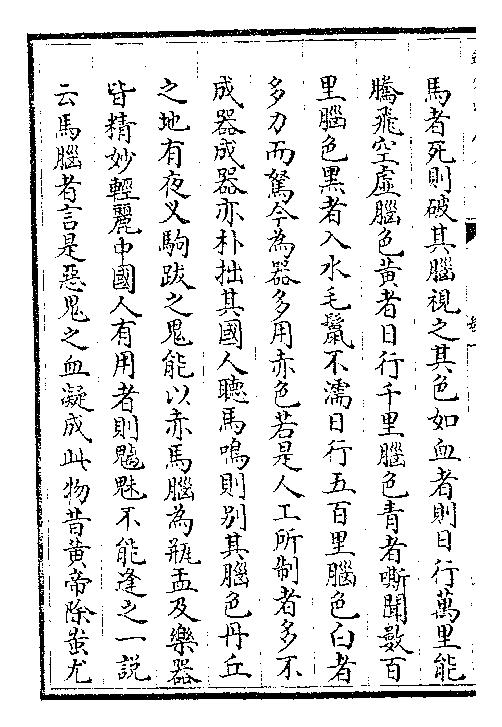 馬者死則破其腦視之其色如血者則日行萬里能
騰飛空虛腦色黃者日行千里腦色青者嘶聞數百
里腦色黑者入水毛鬣不濡日行五百里腦色白者
多力而駑今為器多用赤色若是人工所制者多不
成器成器亦朴拙其國人聽馬鳴則別其腦色丹丘
之地有夜叉駒跋之鬼能以赤馬腦為瓶盂及樂器
皆精妙輕麗中國人有用者則魑魅不能逢之一說
云馬腦者言是惡鬼之血凝成此物昔黃帝除蚩尤